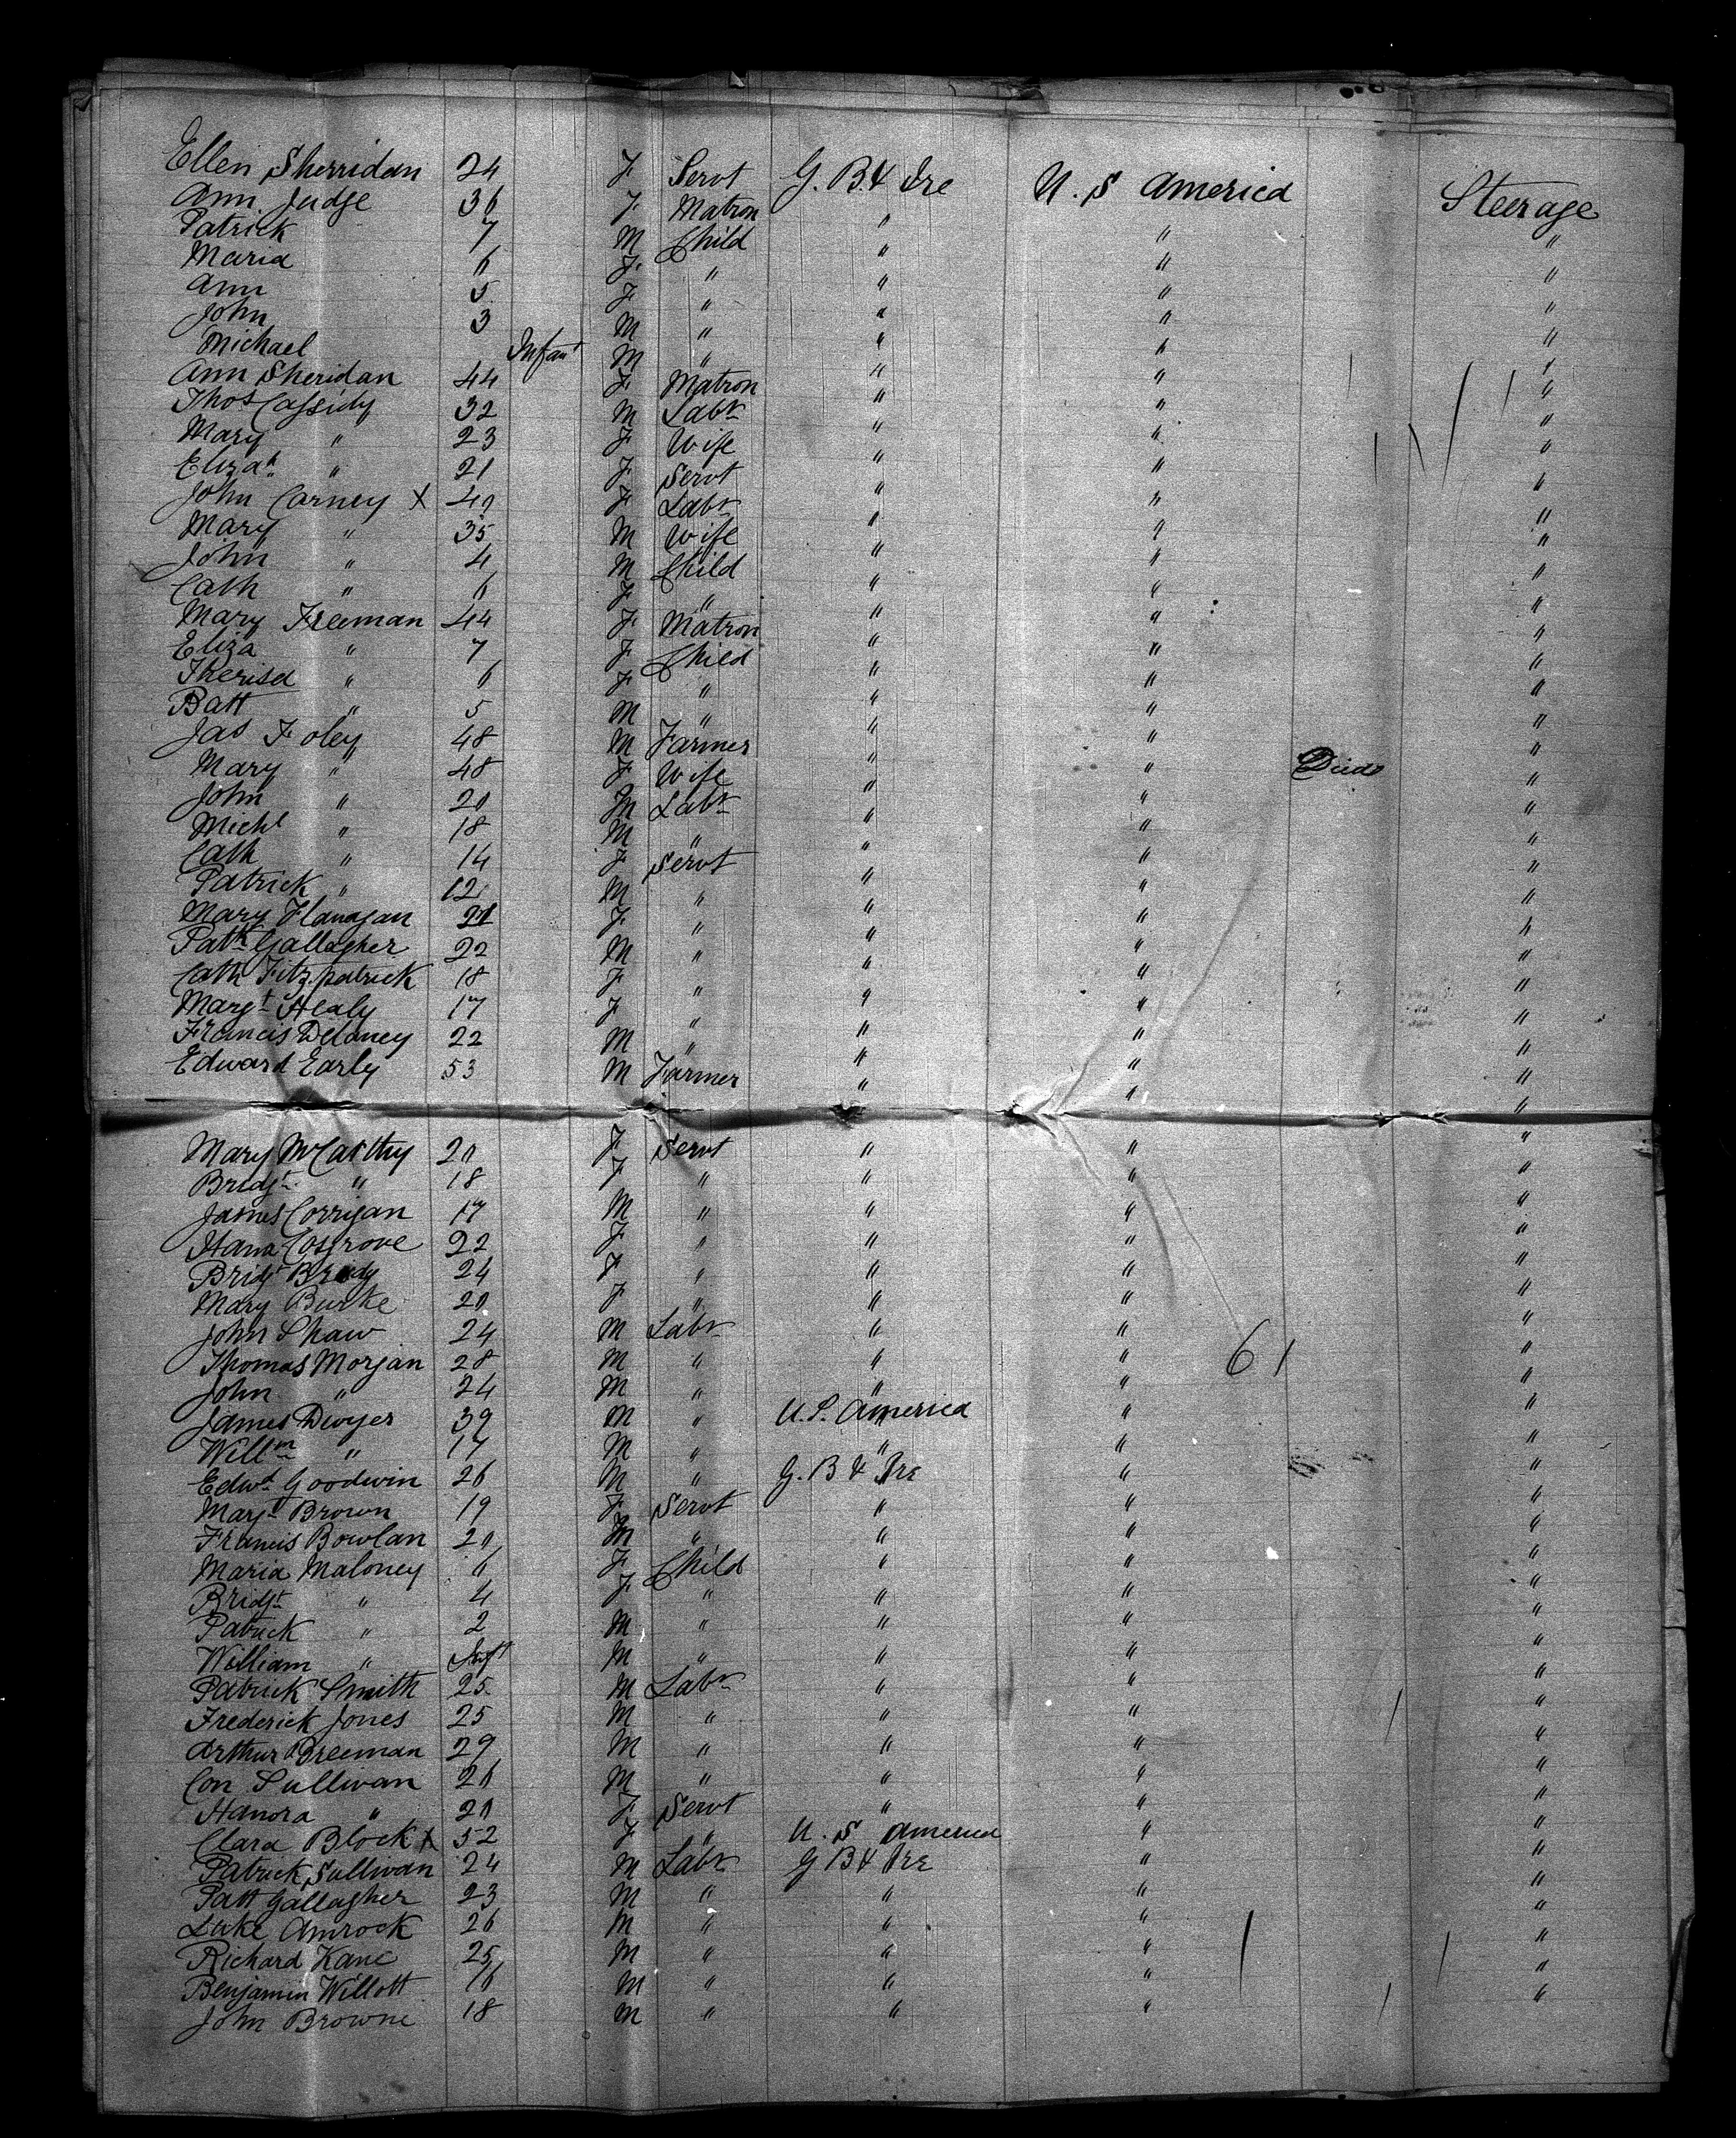 Ellen Sherridan 24 F Servt G. B. & Ire U. S America Steerage
Ann Judge 36 F Matron " " "
Patrick 7 M Child " " "
Maria 6 F " " " "
Ann 5 F " " " "
John 3 M " " " "
Michael Infant M " " " "
Ann Sheridan 44 F Matron " " "
Thos Cassidy 32 M Labr " " "
Mary " 23 F Wife " " "
Elizah " 21 F Servt " " "
John Carney X 40 F Labr " " "
Mary " 35 M Wife " " "
John " 4 M Child " " "
Cath " 6 F " " " "
Mary Freeman 44 F Matron " " "
Eliza " 7 F Child " " "
Therisa " 6 F " " " "
Batt " 5 M " " " "
Jas Foley 48 M Farmer " " "
Mary " 48 F Wife " " Died "
John " 20 M Labr " " "
Michl " 18 M " " " "
Cath " 14 F Servt " " "
Patrick " 12 M " " " "
Mary Flanagan 21 F " " " "
Patk Gallagher 22 M " " " "
Cath Fitzpatrick 18 F " " " "
Margt Healy 17 F " " " "
Francis Delaney 22 M " " " "
Edward Early 53 M Farmer " " "
Mary McCarthy 20 F Servt " " "
Bridgt " 18 F " " " "
James Corrigan 17 M " " " "
Hana Cosgrove 22 F " " " "
Bridgt Brady 24 F " " " "
Mary Burke 20 F " " " "
John Shaw 24 M Labr " " "
Thomas Morgan 28 M " " " 61 "
John " 24 M " " " "
James Dwyer 39 M " U. S. America " "
Willm " 17 M " " " "
Edwd Goodwin 26 M " G. B & Ire " "
Margt Brown 19 F Servt " " "
Francis Bowlan 20 M " " " "
Maria Maloney 6 F Child " " "
Bridgt " 4 F " " " "
Patrick " 2 M " " " "
William " Inft M " " " "
Patrick Smith 25 M Labr " " "
Frederick Jones 25 M " " " "
Arthur Breeman 29 M " " " "
Con Sullivan 26 M " " " "
Hanora " 20 F Servt " " "
Clara Block X 52 F " U. S America " "
Patrick Sullivan 24 M Labr G B & Ire " "
Patt Gallagher 23 M " " " "
Luke Amrock 26 M " " " "
Richard Kane 25 M " " " "
Benjamin Willott 16 M " " " "
John Browne 18 M " " "